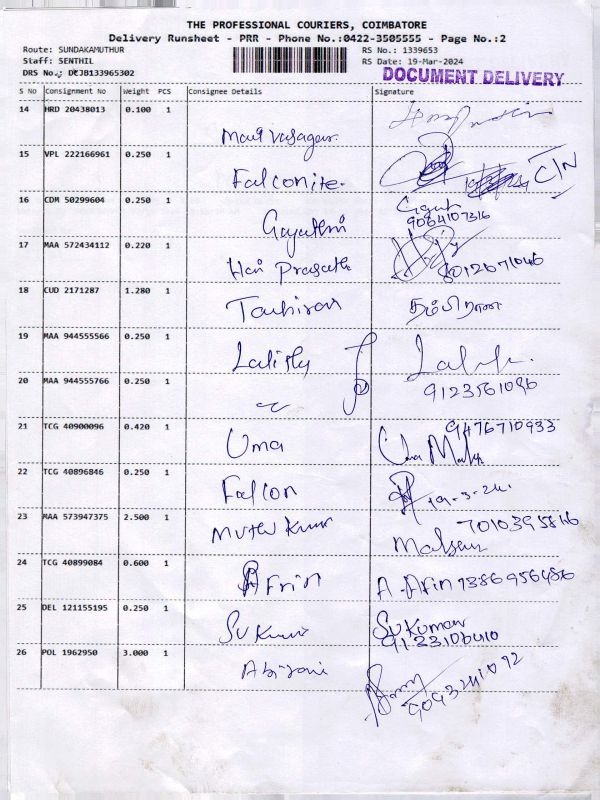 THE PROFESSIONAL COURIERS, COIMBATORE
Delivery Runsheet - PRR - Phone No.:0422-3505555 - Page No.:2
Route: SUNDAKAMUTHUR
RS No.: 1339653
Staff: SENTHIL
RS Date: 19-Mar-2024
DRS No.: DCJB133965302
DOCUMENT DELIVERY
S No Consignment No Weight PCS Consignee Details Signature
14 HRD 20438013 0.100 1
15 VPL 222166961 0.250 1 Falconite. C/N
16 CDM 50299604 0.250 1 Gayathri
9064107316
17 MAA 572434112 0.220 1 Hari Prasath 8012671046
18 CUD 2171287 1.280 1
19 MAA 944555566 0.250 1
20 MAA 944555766 0.250 1 9123561096
21 TCG 40900096 0.420 1 Uma 9476710933
22 TCG 40896846 0.250 1 Falcon 19-3-24.
23 MAA 573947375 2.500 1 Muthu Kumar
24 TCG 40899084 0.600 1 Afrin A.Afrin 7386956486
25 DEL 121155195 0.250 1 Sukumar Sukumar
9123106410
26 POL 1962950 3.000 1 Abirami